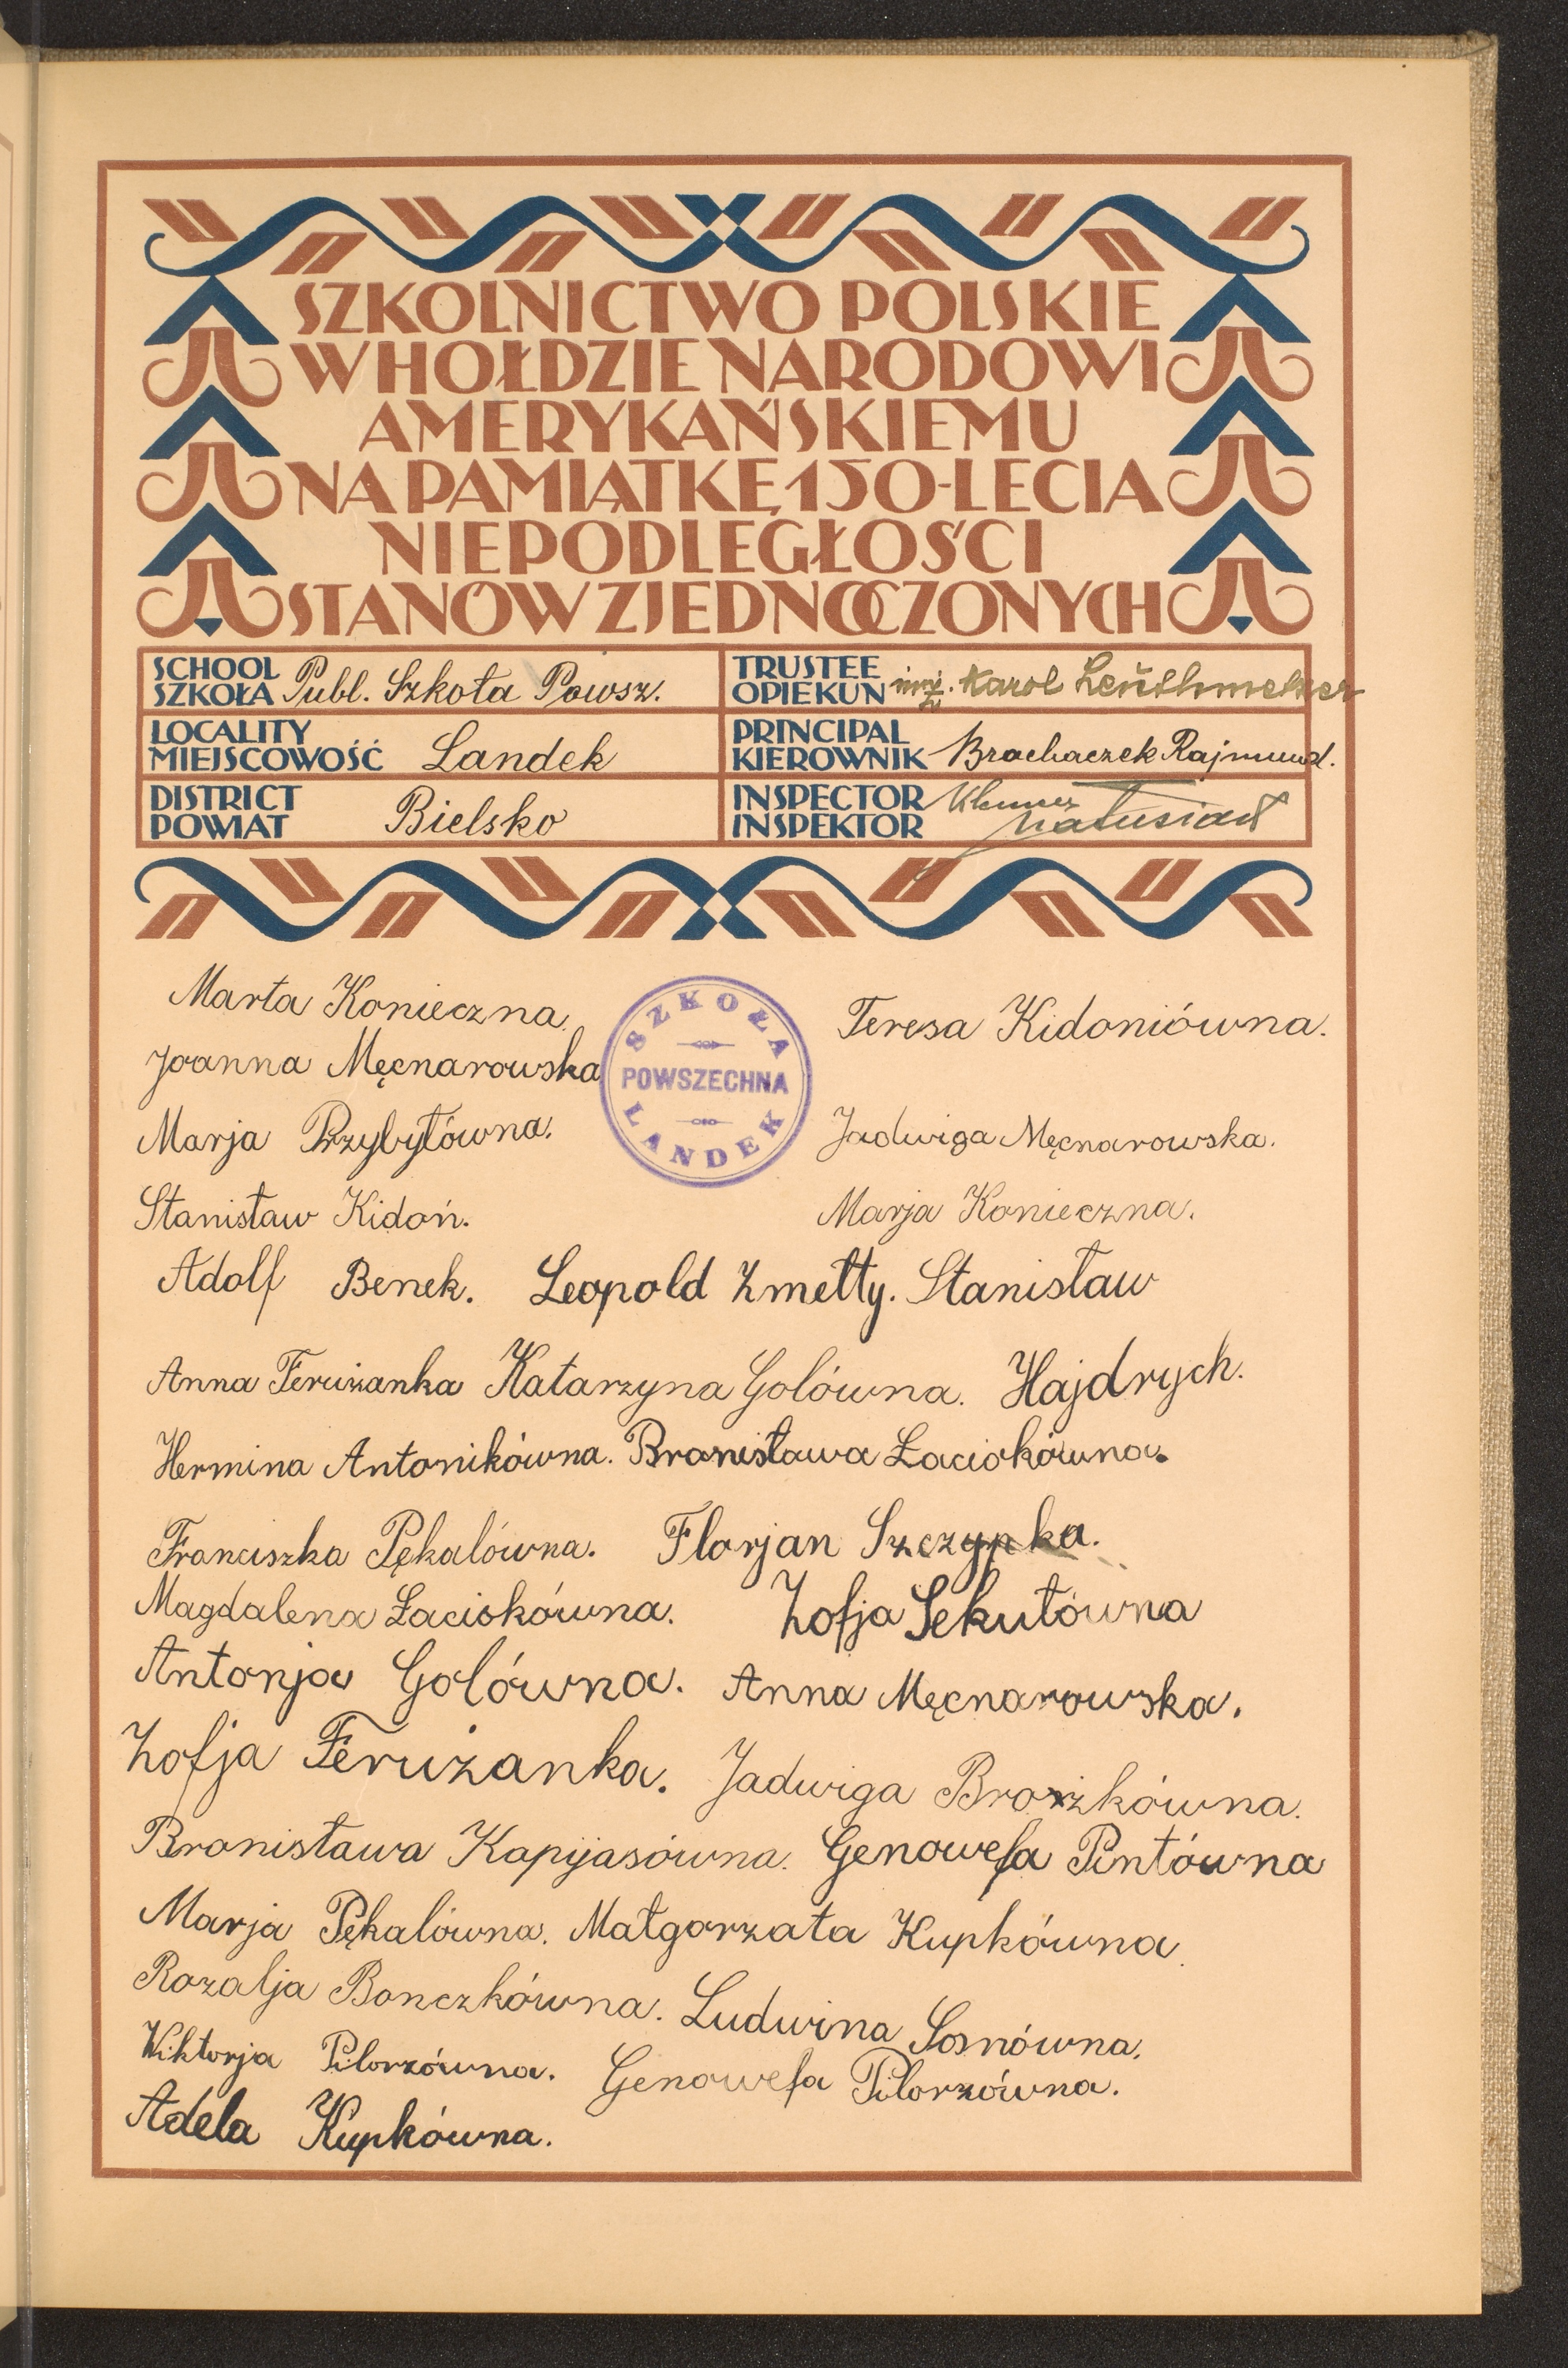 SZKOLNICTWO POLSKIE
W HOŁDZIE NARODOWI
AMERYKAŃSKIEMU
NA PAMIĄTKĘ 150-LECIA
NIEPODLEGŁOŚCI
STANÓW ZJEDNOCZONYCH
SCHOOL
SZKOŁA Publ. Szkoła Powsz.
TRUSTEE
OPIEKUN inż. Karol
LOCALITY
MIEJSCOWOŚĆ Landek
PRINCIPAL
KIEROWNIK Brachaczek Rajmund.
DISTRICT
POWIAT Bielsko
INSPECTOR
INSPEKTOR Matusiak
SZKOŁA
POWSZECHNA
LANDEK
Marta Konieczna.
Teresa Kidoniówna.
Joanna Męcnarowska
Marja Przybyłówna.
Jadwiga Męcnarowska.
Stanisław Kidoń.
Marja Konieczna.
Adolf Benek. Leopold Zmełty. Stanisław
Anna Ferużanka Katarzyna Golówna. Hajdrych.
Hermina Antonikówna. Bronisława Łaciokówna.
Franciszka Pękalówna. Florjan Szczypka.
Magdalena Łaciokówna. Zofja Sekułówna
Antonja Golówna. Anna Męcnarowska.
Zofja Ferużanka. Jadwiga Brożkówna.
Bronisława Kapijasówna. Genowefa Pintówna
Marja Pękalówna. Małgorzata Kupkówna.
Rozalja Bonczkówna. Ludwina Sosnówna.
Wiktorja Pilorzówna. Genowefa Pilorzówna.
Adela Kupkówna.